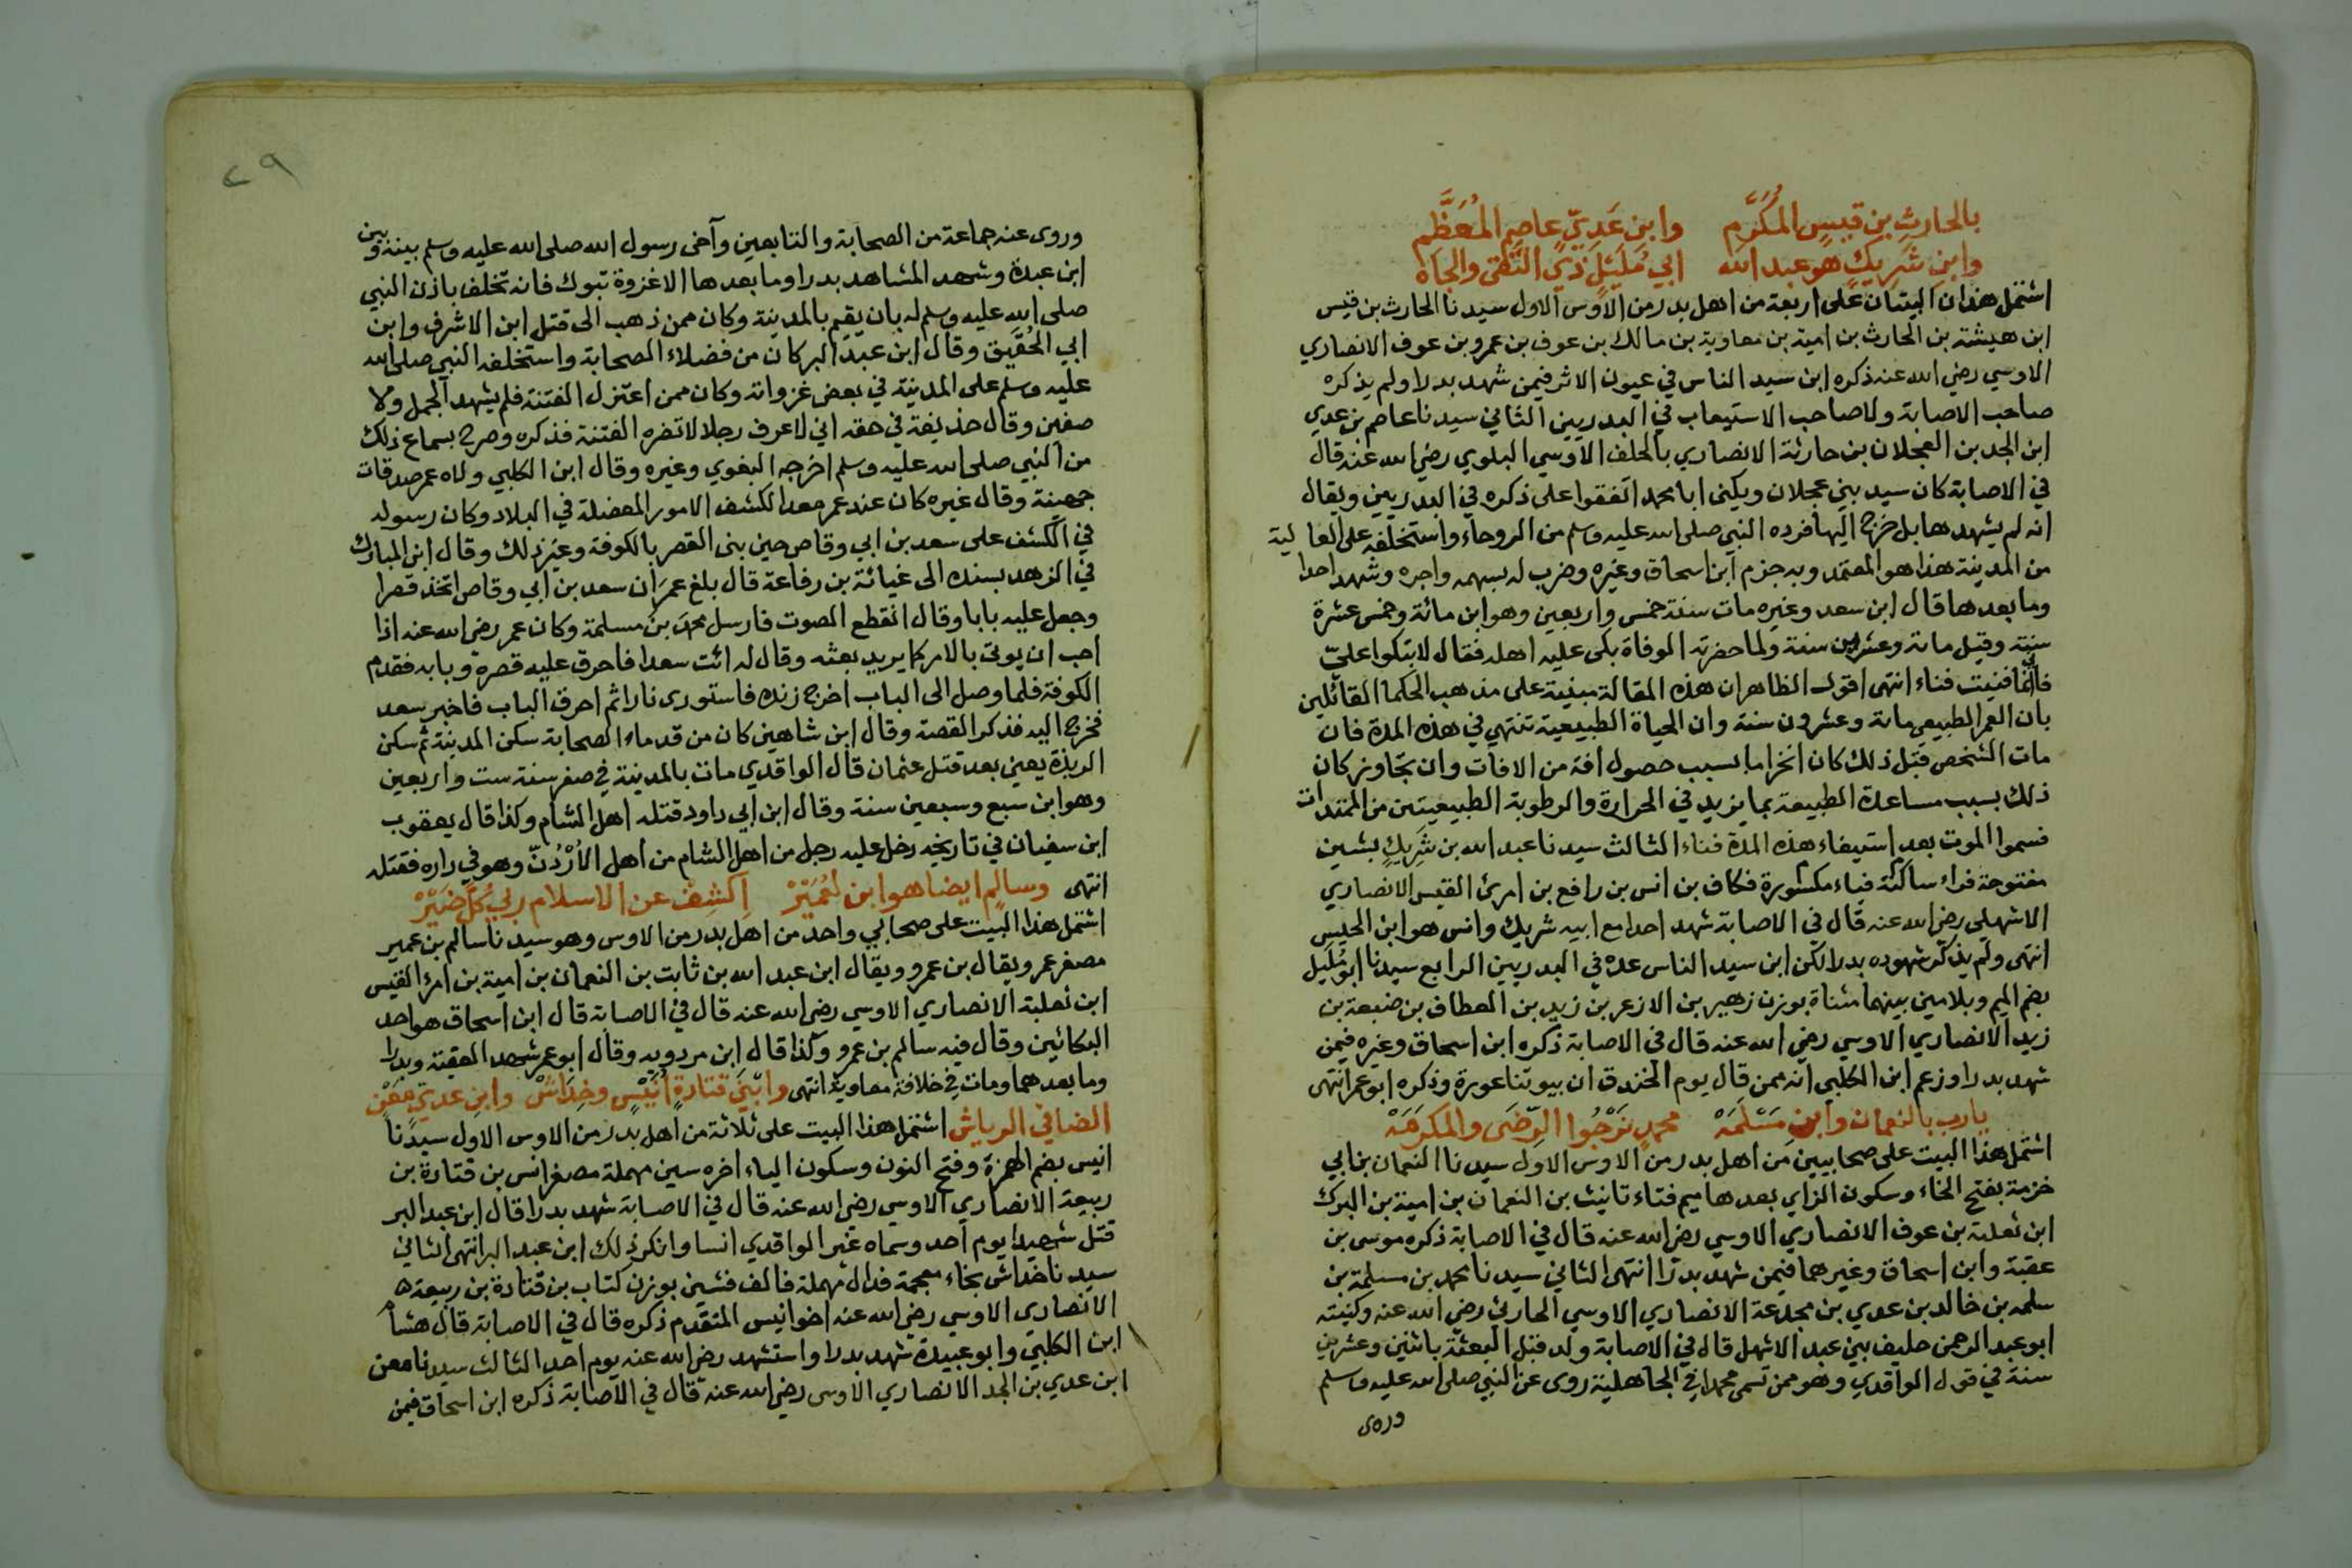 بالحارثِ بن قيسٍ المُكَرَّمِ وابنِ عَدِيٍّ عاصمِ المُعَظَّمِ
وابنِ شَرِيكٍ هو عبد الله ابي مُلَيْلٍ ذي التُّقى والجاه
اشتمل هذان البيتان على اربعة من اهل بدر من الاوس الاول سيدنا الحارث بن قيس
ابن هيشة بن الحارث بن امية بن معاوية بن مالك بن عوف بن عمرو بن عوف الانصاري
الاوسي رضي الله عنه ذكره ابن سيد الناس في عيون الاثر فيمن شهد بدرا ولم يذكره
صاحب الاصابة ولا صاحب الاستيعاب في البدريين الثاني سيدنا عاصم بن عدي
ابن الجد بن العجلان بن حارثة الانصاري بالحلف الاوسي البلوي رضي الله عنه قال
في الاصابة كان سيد بني عجلان ويكنى ابا محمد اتفقوا على ذكره في البدريين ويقال
انه لم يشهدها بل خرج اليها فرده النبي صلى الله عليه وسلم من الروحاء واستخلفه على العالية
من المدينة هذا هو المعتمد وبه جزم ابن اسحاق وغيره وضرب له بسهمه واجره وشهد احدا
وما بعدها قال ابن سعد وغيره مات سنة خمس واربعين وهو ابن مائة وخمس عشرة
سنة وقيل مائة وعشرين سنة ولما حضرته الوفاة بكى عليه اهله فقال لا تبكوا عليّ
فاني انما فنيت فناء انتهى اقول الظاهر ان هذه المقالة مبنية على مذهب الحكما القائلين
بان العمر الطبيعي مائة وعشرون سنة وان الحياة الطبيعية تنتهي في هذه المدة فان
مات الشخص قبل ذلك كان انخراما بسبب حصول افة من الافات وان تجاوز كان
ذلك بسبب مساعدة الطبيعة بما يزيد في الحرارة والرطوبة الطبيعيتين من الممتدات
فسموا الموت بعد استيفاء هذه المدة فناء الثالث سيدنا عبد الله بن شَرِيكٍ بشين
مفتوحة فراء ساكنة فياء مكسورة فكاف بن انس بن رافع بن امرئ القيس الانصاري
الاشهلي رضي الله عنه قال في الاصابة شهد احدا مع ابيه شريك وانس هو ابن الحليس
انتهى ولم يذكر شهوده بدرا لكن ابن سيد الناس عده في البدريين الرابع سيدنا ابو مُلَيل
بضم الميم وبلامين بينهما مثناة بوزن زهير بن الازعر بن زيد بن العطاف بن ضبيعة بن
زيد الانصاري الاوسي رضي الله عنه قال في الاصابة ذكره ابن اسحاق وغيره فيمن
شهد بدرا وزعم ابن الكلبي انه ممن قال يوم الخندق ان بيوتنا عورة وذكره ابو عمر انتهى
يارب بالنعمان وابن مَسْلَمَهْ محمدٍ نَرْجُوا الرِّضَى والمكرَمَهْ
اشتمل هذا البيت على صحابيين من اهل بدر من الاوس الاول سيدنا النعمان بن ابي
خزمة بفتح الخاء وسكون الزاي بعدها ميم فتاء تانيث بن النعمان بن امية بن البرك
ابن ثعلبة بن عوف الانصاري الاوسي رضي الله عنه قال في الاصابة ذكره موسى بن
عقبة وابن اسحاق وغيرهما فيمن شهد بدرا انتهى الثاني سيدنا محمد بن مسلمة بن
سلمه بن خالد بن عدي بن مجدعة الانصاري الاوسي الحارثي رضي الله عنه وكنيته
ابو عبد الرحمن حليف بني عبد الاشهل قال في الاصابة ولد قبل البعثة باثنين وعشرين
سنة في قول الواقدي وهو ممن تسمى محمدا في الجاهلية روى عن النبي صلى الله عليه وسلم
وروى
٢٩
وروى عنه جماعة من الصحابة والتابعين وآخى رسول الله صلى الله عليه وسلم بينه وبين
ابن عبدة وشهد المشاهد بدرا وما بعدها الا غزوة تبوك فانه تخلف باذن النبي
صلى الله عليه وسلم له بان يقيم بالمدينة وكان ممن ذهب الى قتل ابن الاشرف وابن
ابي الحُقَيق وقال ابن عبد البر كان من فضلاء الصحابة واستخلفه النبي صلى الله
عليه وسلم على المدينة في بعض غزواته وكان ممن اعتزل الفتنة فلم يشهد الجمل ولا
صفين وقال حذيفة في حقه اني لاعرف رجلا لا تضره الفتنة فذكره وصرح بسماع ذلك
من النبي صلى الله عليه وسلم اخرجه البغوي وغيره وقال ابن الكلبي ولاه عمر صدقات
جهينة وقال غيره كان عند عمر معدا لكشف الامور المعضلة في البلاد وكان رسوله
في الكشف على سعد بن ابي وقاص حين بنى القصر بالكوفة وغير ذلك وقال ابن المبارك
في الزهد بسنده الى عباية بن رفاعة قال بلغ عمر ان سعد بن ابي وقاص اتخذ قصرا
وجعل عليه بابا وقال انقطع الصوت فارسل محمد بن مسلمة وكان عمر رضي الله عنه اذا
احب ان يوتى بالامر كما يريد بعثه وقال له ائت سعدا فاحرق عليه قصره وبابه فقدم
الكوفة فلما وصل الى الباب اخرج زنده فاستورى نارا ثم احرق الباب فاخبر سعد
فخرج اليه فذكر القصة وقال ابن شاهين كان من قدماء الصحابة سكن المدينة ثم سكن
الربذة يعني بعد قتل عثمان قال الواقدي مات بالمدينة في صفر سنة ست واربعين
وهو ابن سبع وسبعين سنة وقال ابن ابي داود قتله اهل الشام وكذا قال يعقوب
ابن سفيان في تاريخه دخل عليه رجل من اهل الشام من اهل الأُرْدُنّ وهو في داره فقتله
انتهى وسالمٍ ايضا هو ابن لعُمَيْرْ اِكشِفْ عن الاسلام ربي كُلَّ ضَيْرْ
اشتمل هذا البيت على صحابي واحد من اهل بدر من الاوس وهو سيدنا سالم بن عمير
مصغر عمر ويقال بن عمرو ويقال ابن عبد الله بن ثابت بن النعمان بن امية بن امرئ القيس
ابن ثعلبة الانصاري الاوسي رضي الله عنه قال في الاصابة قال ابن اسحاق هو احد
البكائين وقال فيه سالم بن عمرو وكذا قال ابن مردويه وقال ابو عمر شهد العقبة وبدرا
وما بعدهما ومات في خلافة معاوية انتهى وابنَيْ قتادةٍ أُنَيْسٍ وخِدَاشْ وابنِ عديٍّ مَعْنٍ
الضافي الرياش اشتمل هذا البيت على ثلاثة من اهل بدر من الاوس الاول سيدنا
انيس بضم الهمزة وفتح النون وسكون الياء اخره سين مهملة مصغر انس بن قتادة بن
ربيعة الانصاري الاوسي رضي الله عنه قال في الاصابة شهد بدرا قال ابن عبد البر
قتل شهيدا يوم احد وسماه غير الواقدي انسا وانكر ذلك ابن عبد البر انتهى الثاني
سيدنا خداش بخاء معجمة فدال مهملة فالف فشين بوزن كتاب بن قتادة بن ربيعة
الانصاري الاوسي رضي الله عنه اخو انيس المتقدم ذكره قال في الاصابة قال هشام
ابن الكلبي وابو عبيدة شهد بدرا واستشهد رضي الله عنه يوم احد الثالث سيدنا معن
ابن عدي بن الجد الانصاري الاوسي رضي الله عنه قال في الاصابة ذكره ابن اسحاق فيمن